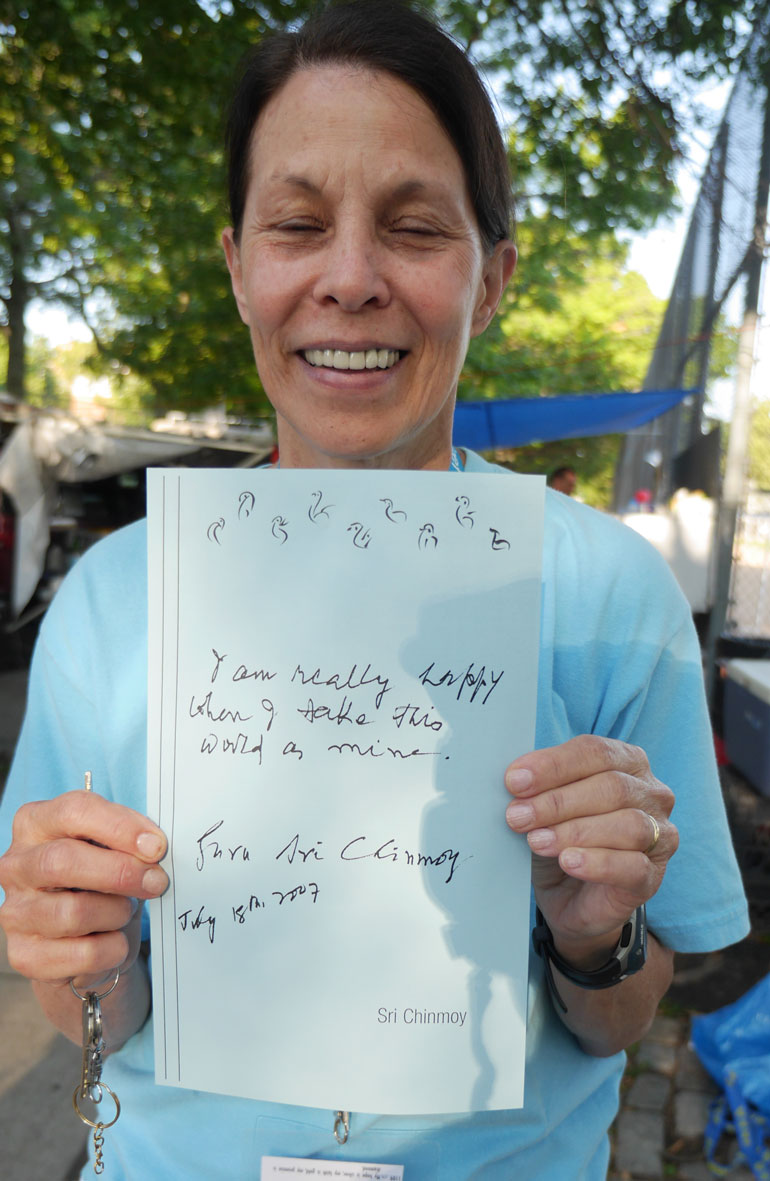 I am really happy
when I take this
world as mine.
Guru Sri Chinmoy
July 18th, 2007
Sri Chinmoy